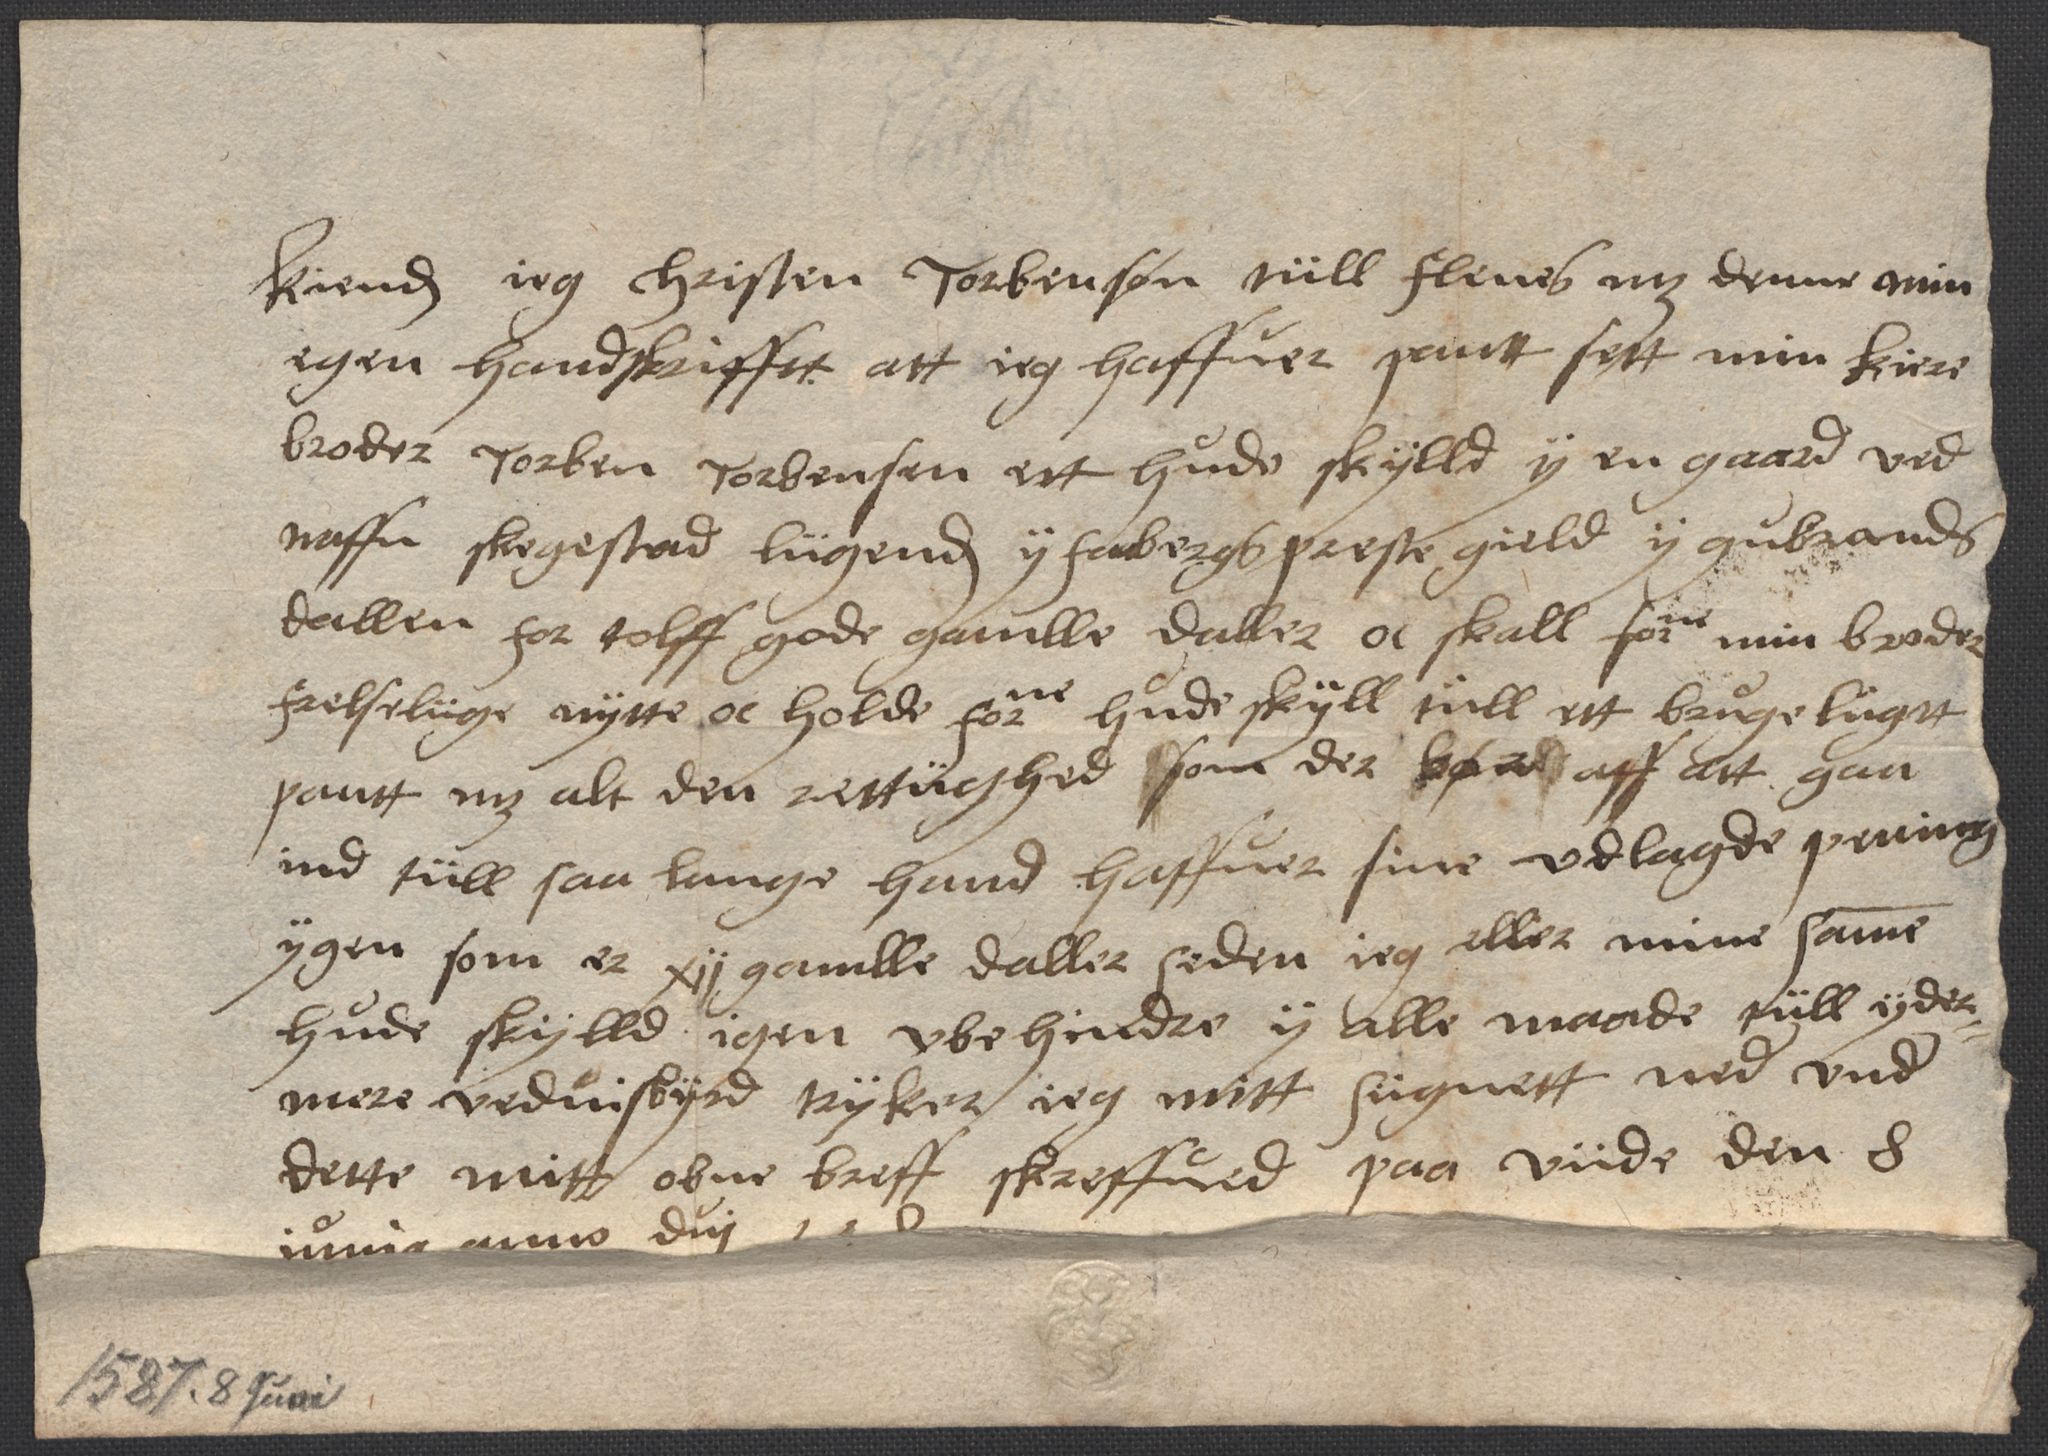 kiend ieg Christen Torbensøn tüll flenes mz denne min
egen handskrifftt att ieg haffuer pantt sett min kiere
broder Torben Torbensen ett hude skylld ÿ en gaard ved
naffn skegestad lügend ÿ fabergs preste gield ÿ gubrands
dallen for tolff gode gamlle daller oc skall forne min broder
frelselüge nÿtte oc holde forne hude skÿll tüll ett brugelügtt
pantt mz alt den rettüghed som der bør aff att gaa
ind tüll saa lange hand haffuer sine vdlagde pening
ÿgen som er xij gamlle daller seden ieg eller mine same
hude skÿlld igen vbehindre ÿ alle maade tüll ÿder-
mere veduisbÿrd trÿker ieg mitt sügnett ned vnd
dette mitt obne breff skreffued paa viide den 8
iunij anno dnj
1587. 8 Juni